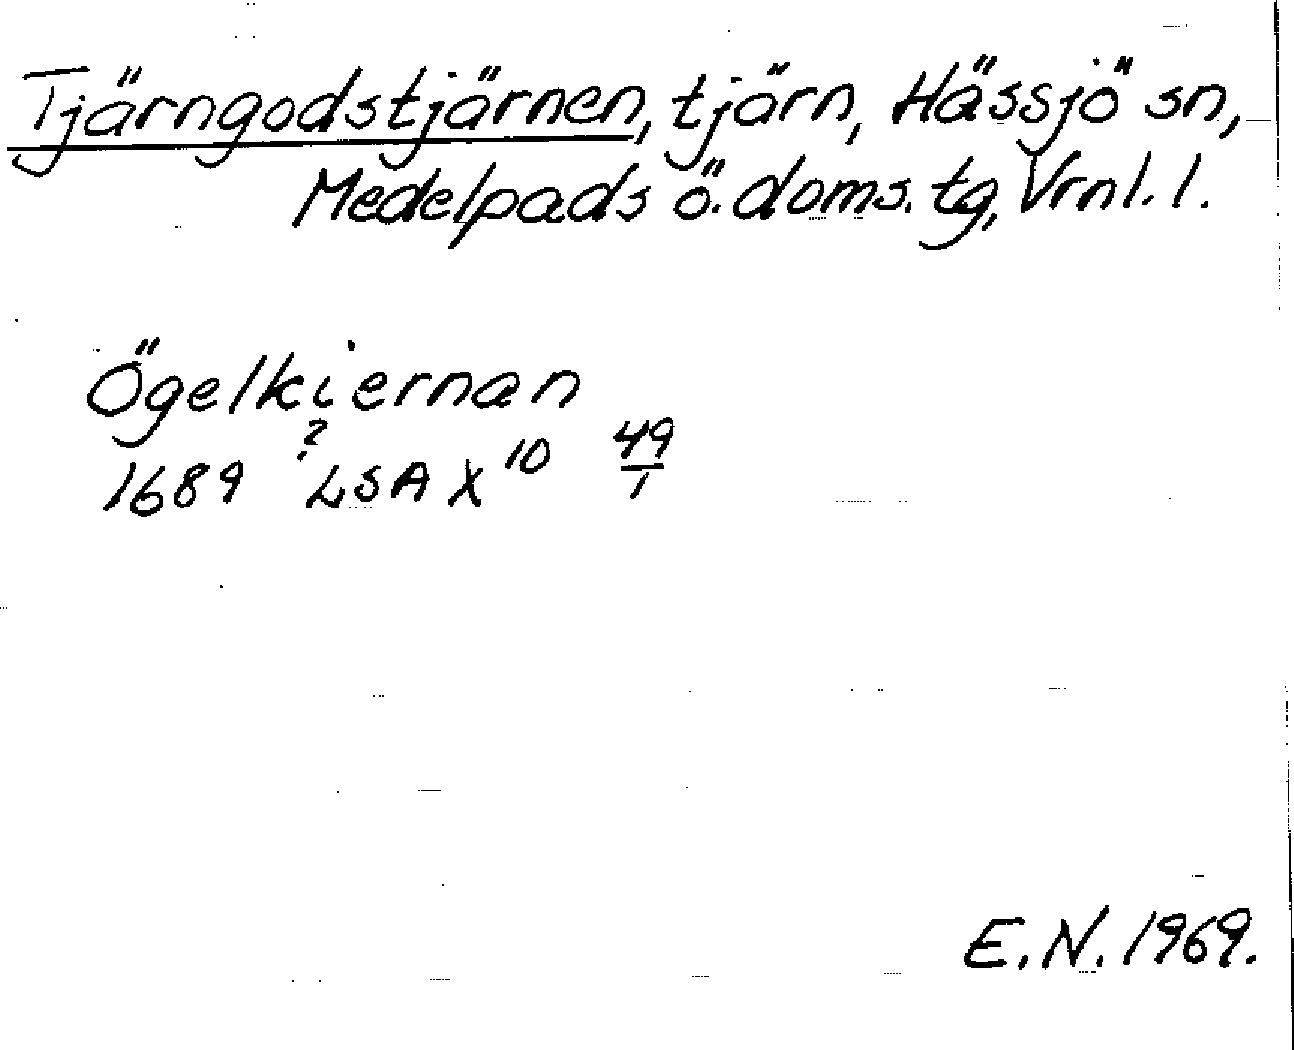 Tjärngodstjärnen, tjärn, Hässjö sn,
Medelpads ö. doms. tg, Vrnl. l.
Ögelkiernan
?
1689 LSA X 10 49/1
E. N. 1969.